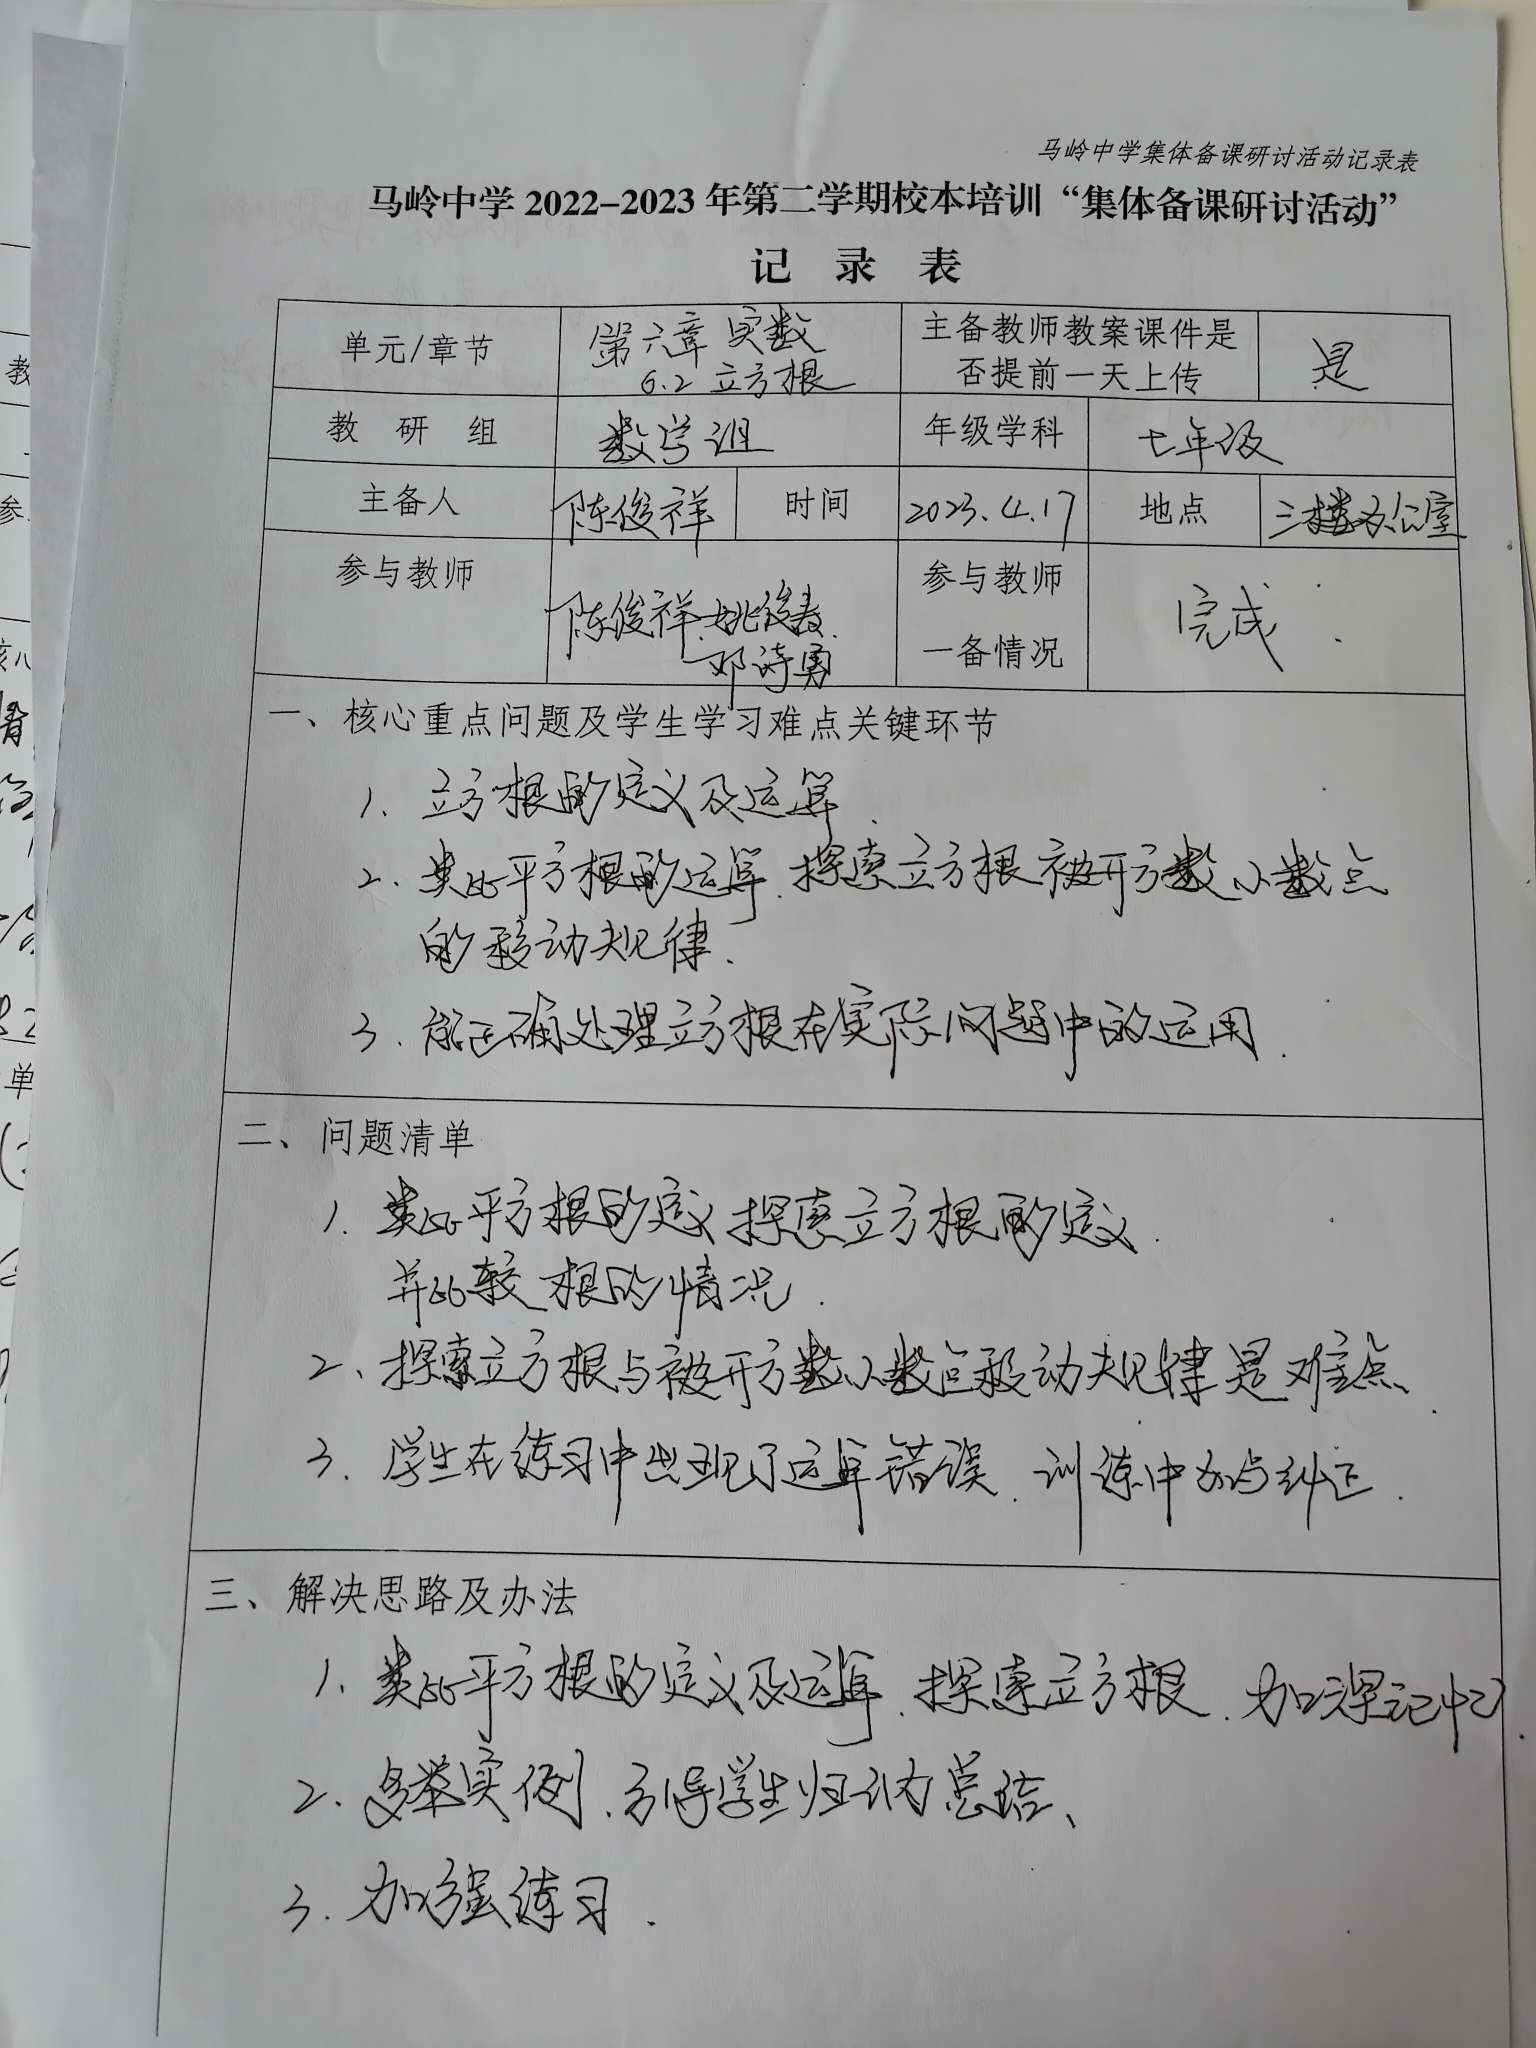 马岭中学集体备课研讨活动记录表
马岭中学 2022-2023 年第二学期校本培训“集体备课研讨活动”
记 录 表
单元/章节 第六章 实数 主备教师教案课件是 是
6.2 立方根 否提前一天上传
教 研 组 数学组 年级学科 七年级
主备人 陈俊祥 时间 2023.4.17 地点 三楼办公室
参与教师 陈俊祥 姚俊 参与教师 完成
邓诗勇 一备情况
一、核心重点问题及学生学习难点关键环节
1. 立方根的定义及运算.
2. 类比平方根的运算.探索立方根被开方数小数点
的移动规律.
3. 能正确处理立方根在实际问题中的运用.
二、问题清单
1. 类比平方根的定义探索立方根的定义.
并比较根的情况.
2. 探索立方根与被开方数小数点移动规律是难点.
3. 学生在练习中出现了运算错误.训练中加与纠正.
三、解决思路及办法
1. 类比平方根的定义及运算.探索立方根.加深记忆.
2. 多举实例、引导学生归纳总结、
3. 加强练习.